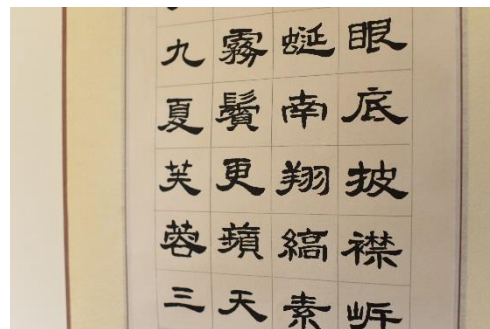 眼底披襟岸
蜒南翔縞素
霧鬢更蘋天
九夏芙蓉三